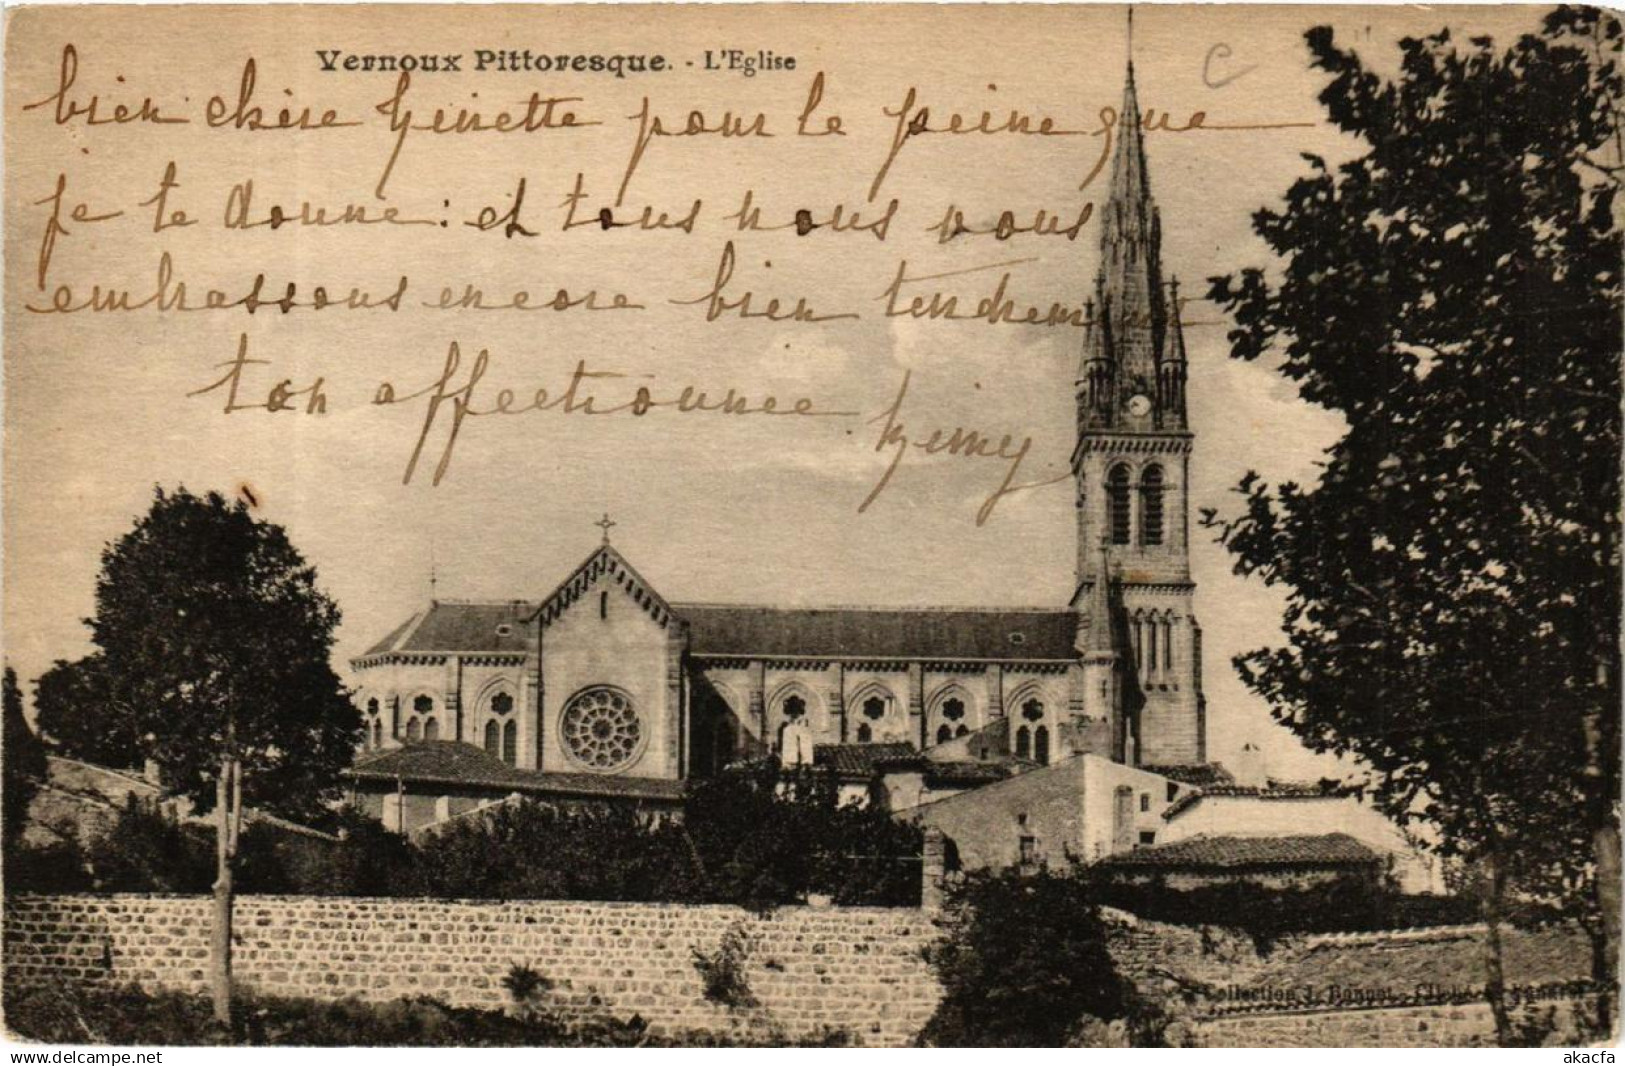 Vernoux Pittoresque. - L'Eglise
c
bien chère Ginette pour le peine que
je te donne : et tous nous vous
embrassons encore bien tendrement
ton affectionnee
Collection
akacfa
www.delcampe.net